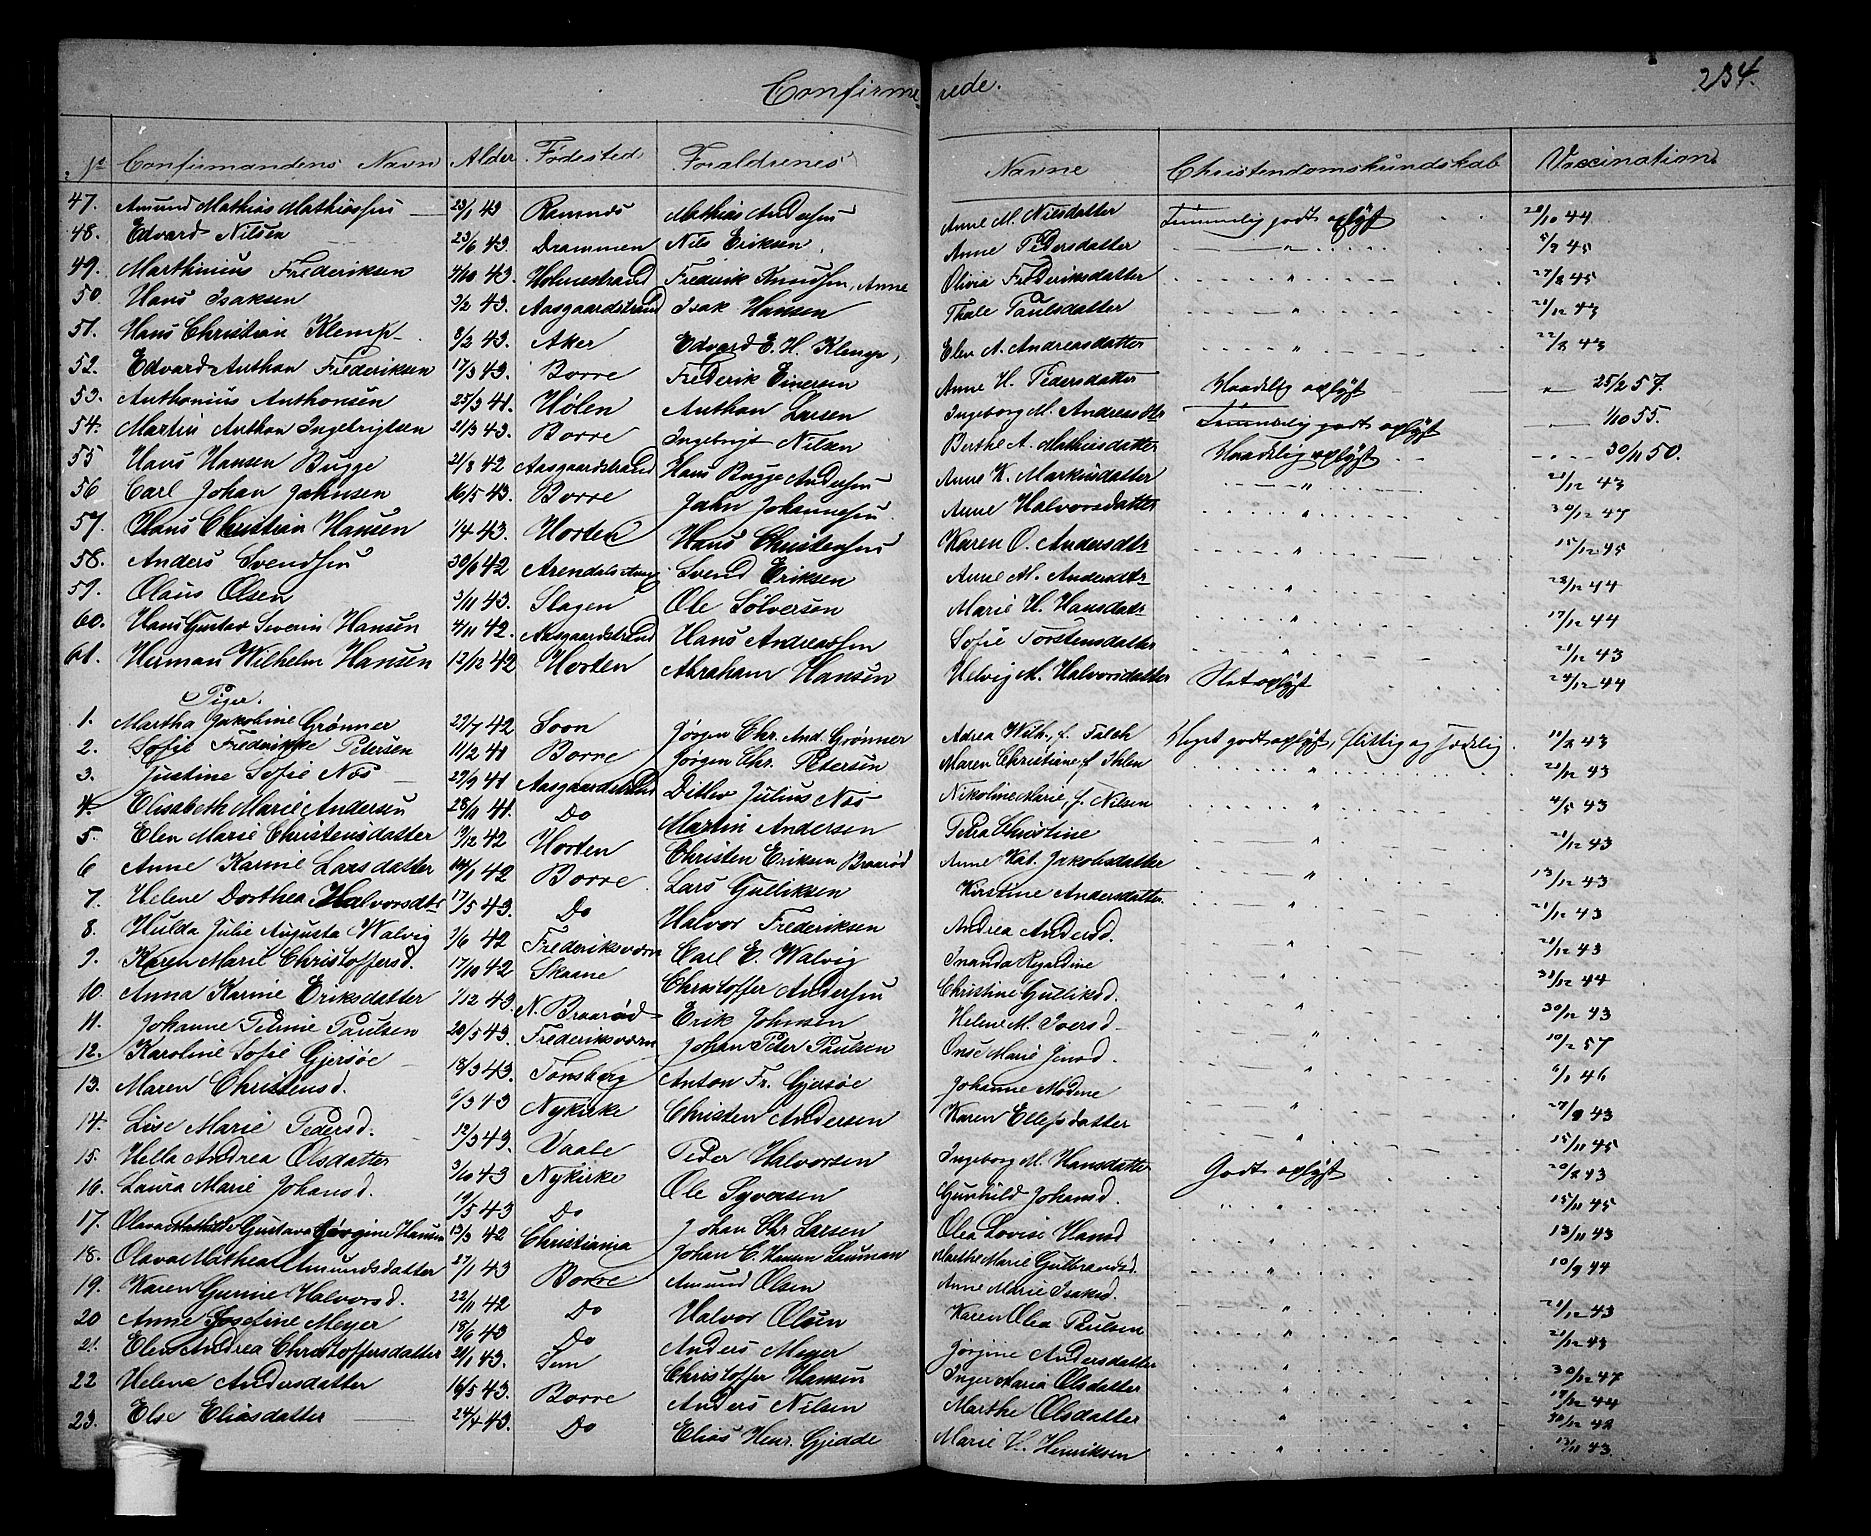 Confirmerede. 234.
No Confirmandens Navn Alder Fødested Forældrenes Navne Christendomskundskab Vaccination
47. Amund Mathias Mathiassen 23/1 43 Ramnæs Mathias Andersen Anne M. Nilsdatter Temmelig godt oplyst 20/10 44
48. Edvard Nilsen 23/6 43. Drammen Nils Eriksen, Anne Pedersdatter " 5/7 45
49. Marthinius Frederiksen 4/10 43. Holmestrand Frederik Knudsen, Anne Olivia Frederiksdatter " 27/8 45
50. Hans Isaksen 3/2 43. Aasgaardstrand Isak Hansen Thale Paulsdatter " 21/12 43
51. Hans Christian Klemp 8/2 43. Aker Edvard E. H. Klemp, Elen A. Andreasdatter " 22/8 43
52. Edvard Anthon Frederiksen 17/3 43. Borre Frederik Einersen Anne H. Pedersdatter Maadelig oplyst " 25/2 57.
53. Anthonius Anthonsen 25/3 41. Hølen Anthon Larsen Ingeborg M. Andreasdtr Temmelig godt oplyst 1/10 55.
54. Martin Anthon Ingebrigtsen 21/3 43. Borre Ingebrigt Nilsen Berthe A. Mathiasdatter Maadelig oplyst 30/11 50.
55 Hans Hansen Bugge 21/8 42 Aasgaardstrand Hans Bugge Andersen Anne K. Markusdatter " 21/12 43
56 Carl Johan Jahnsen 16/5 43. Borre Jahn Johannesen Anne Halvorsdatter " 30/12 47
57. Olaus Christian Hansen 1/4 43. Horten Hans Christensen Karen O. Andersdtr " 15/12 45
58. Anders Svendsen 30/6 42 Arendals Svend Eriksen Anne M. Andersdtr " 28/12 44
59. Olaus Olsen 3/11 43. Slagen Ole Sølversen Marie H. Hansdatr " 17/12 44
60. Hans Gustav Severin Hansen 4/11 42. Aasgaardstrand Hans Andreassen Sofie Torstensdatter " 21/12 43
61. Herman Wilhelm Hansen 12/12 42 Horten Abraham Hansen Helvig M. Halvorsdatter Slet oplyst 24/12 44
Piger.
1. Martha Jakobine Grønner 29/7 42 Soon Jørgen Chr. And. Grønner Adrea Wilh. f. Falch Meget godt oplyst, flittig og sædelig. 11/2 43
2. Sofie Frederikke Petersen 11/2 41 Borre Jørgen Chr. Petersen Maren Christiane f. Ihlen " 21/12 43
3. Justine Sofie Nos 29/9 41 Aasgaardstrand Ditlev Julius Nos Nikoline Marie, f. Nilsen " 4/5 43
4. Elisabeth Marie Andersen 28/11 41. Do Martin Andersen Petra Christine " 21/12 43
5. Elen Marie Christensdatter 19/12 42 Horten Christen Eriksen Braarød Anne Kat. Jakobsdatter " 13/12 43
6 Anne Karine Larsdatter 14/1 42 Borre Lars Gulliksen Kirstine Andersdatter " 21/12 43
7. Helene Dorthea Halvorsdtr 17/5 43. Do Halvor Frederiksen Andrea Andersd. " 21/12 43
8. Hulda Julie Augusta Walvig 3/6 42 Frederiksværn Carl E. Walvig Inanda Regardine " 31/12 44
9. Karen Marie Christoffersd. 17/10 42 Skaane Christoffer Andersen Christine Gulliksd. " 30/12 43
10. Anna Karine Eriksdatter 1/12 43 N. Braarød Erik Johnsen Helene M. Iversd " 10/2 57
11. Johanne Petrine Paulsen 20/5 43. Frederiksværn Johan Peter Paulsen Onse Marie Jensd. 6/1 46
12. Karoline Sofie Gjersøe 18/3 43. Tønsberg Anton Fr. Gjersøe Johanne Modene " 27/9 43
13. Maren Christensd. 6/3 43 Nykirke Christen Andersen Karen Ellefsdatter " 15/11 45
14. Lise Marie Pedersd. 12/3 43. Vaale Peder Halvorsen Ingeborg M. Hansdatter Godt oplyst 20/8 43
15. Hella Andrea Olsdatter 3/10 43 Nykirke Ole Syversen Gunhild Johansd. " 15/11 45
16. Laura Marie Johansd. 19/5 43 Do Johan Chr Larsen Olea Lovise Hansd " 13/11 43
17. Olava Mathilde Gustava Jørgine Hansen 13/3 42 Christiania Johan C. Hansen Lauman Marthe Marie Gulbrandsd. " 10/9 44
18. Olava Mathea Amundsdatter 27/1 43 Borre Amund Olsen Anne Marie Isaksd. " 21/12 43
19. Karen Gurine Halvorsd. 22/11 42 Do Halvor Olsen Karen Olea Paulsen " 21/12 43
20 Anne Josefine Meyer 18/6 43 Do Anders Meyer Jørgine Andersdatter " 30/12 47
21. Elen Andrea Christoffersdatter 20/1 43. Sem Christoffer Hansen Inger Maria Olsdatter " 19/12 44
22 Helena Andersdatter 16/5 43. Borre Anders Nilsen Marthe Olsdatter " 30/12 42
23. Else Eliasdatter 24/4 43. Do Elias Henr. Gjedde Marie H. Henriksen " 13/11 43